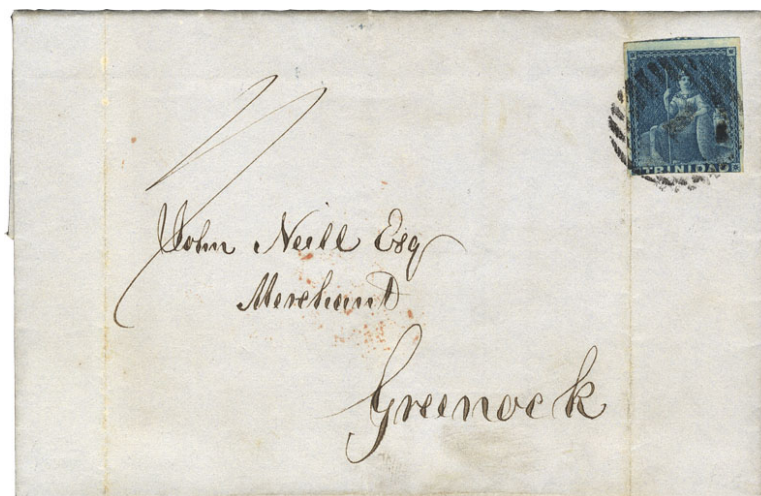 TRINIDAD
John Neill Esq
Merchant
Greenock